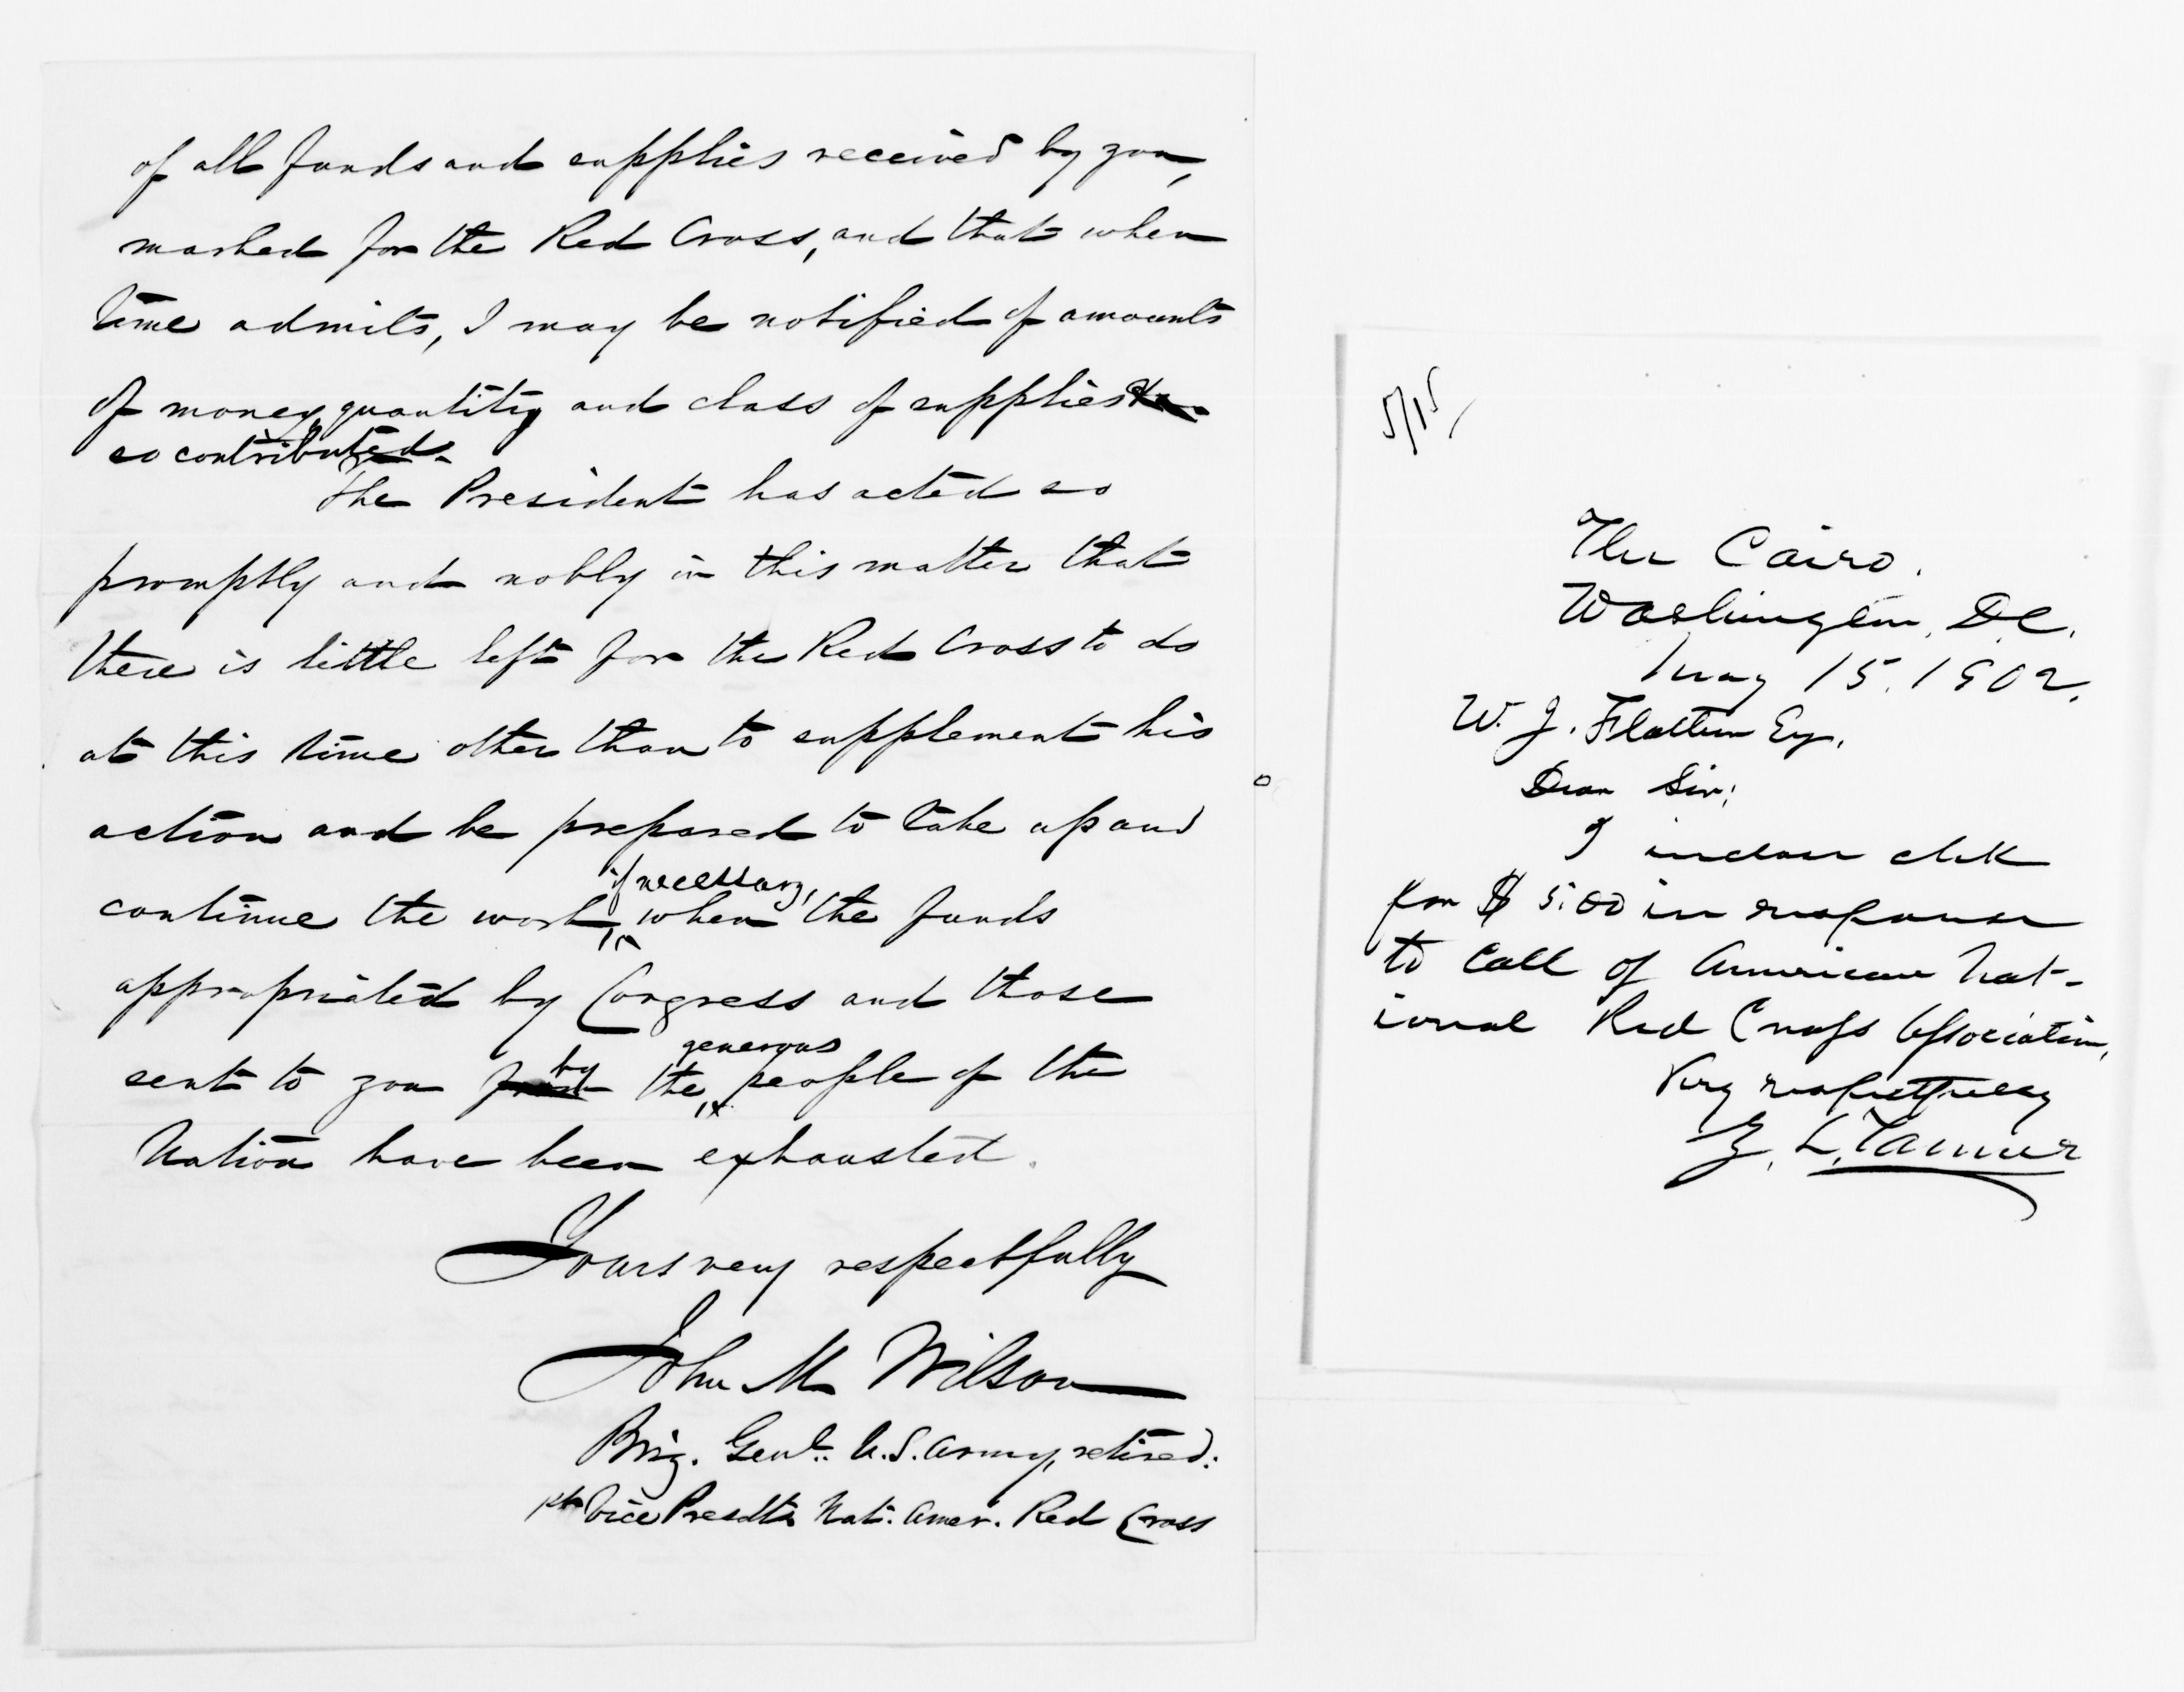 of all funds and supplies received by you,
marked for the Red Cross, and that when
time admits, I may be notified of amounts
of money, quantity and class of supplies
so contributed.
The President has acted so
promptly and nobly in this matter that
there is little left for the Red Cross to do
at this time other than to supplement his
action and be prepared to take up and
continue the work, if necessary, when the funds
appropriated by Congress and those
sent to you by the generous people of the
Nation have been exhausted.
Yours very respectfully
John M Wilson
Brig. Genl. U.S. Army, retired.
1st Vice Presdt. Nat. Amer. Red Cross
5/15/
The Cairo.
Washington, D.C.
May 15, 1902.
W. J. Flather Esq.
Dear Sir;
I inclose chk
for $ 5.00 in response
to Call of American Nat-
ional Red Cross Association,
Very respectfully
Z. L. Tanner